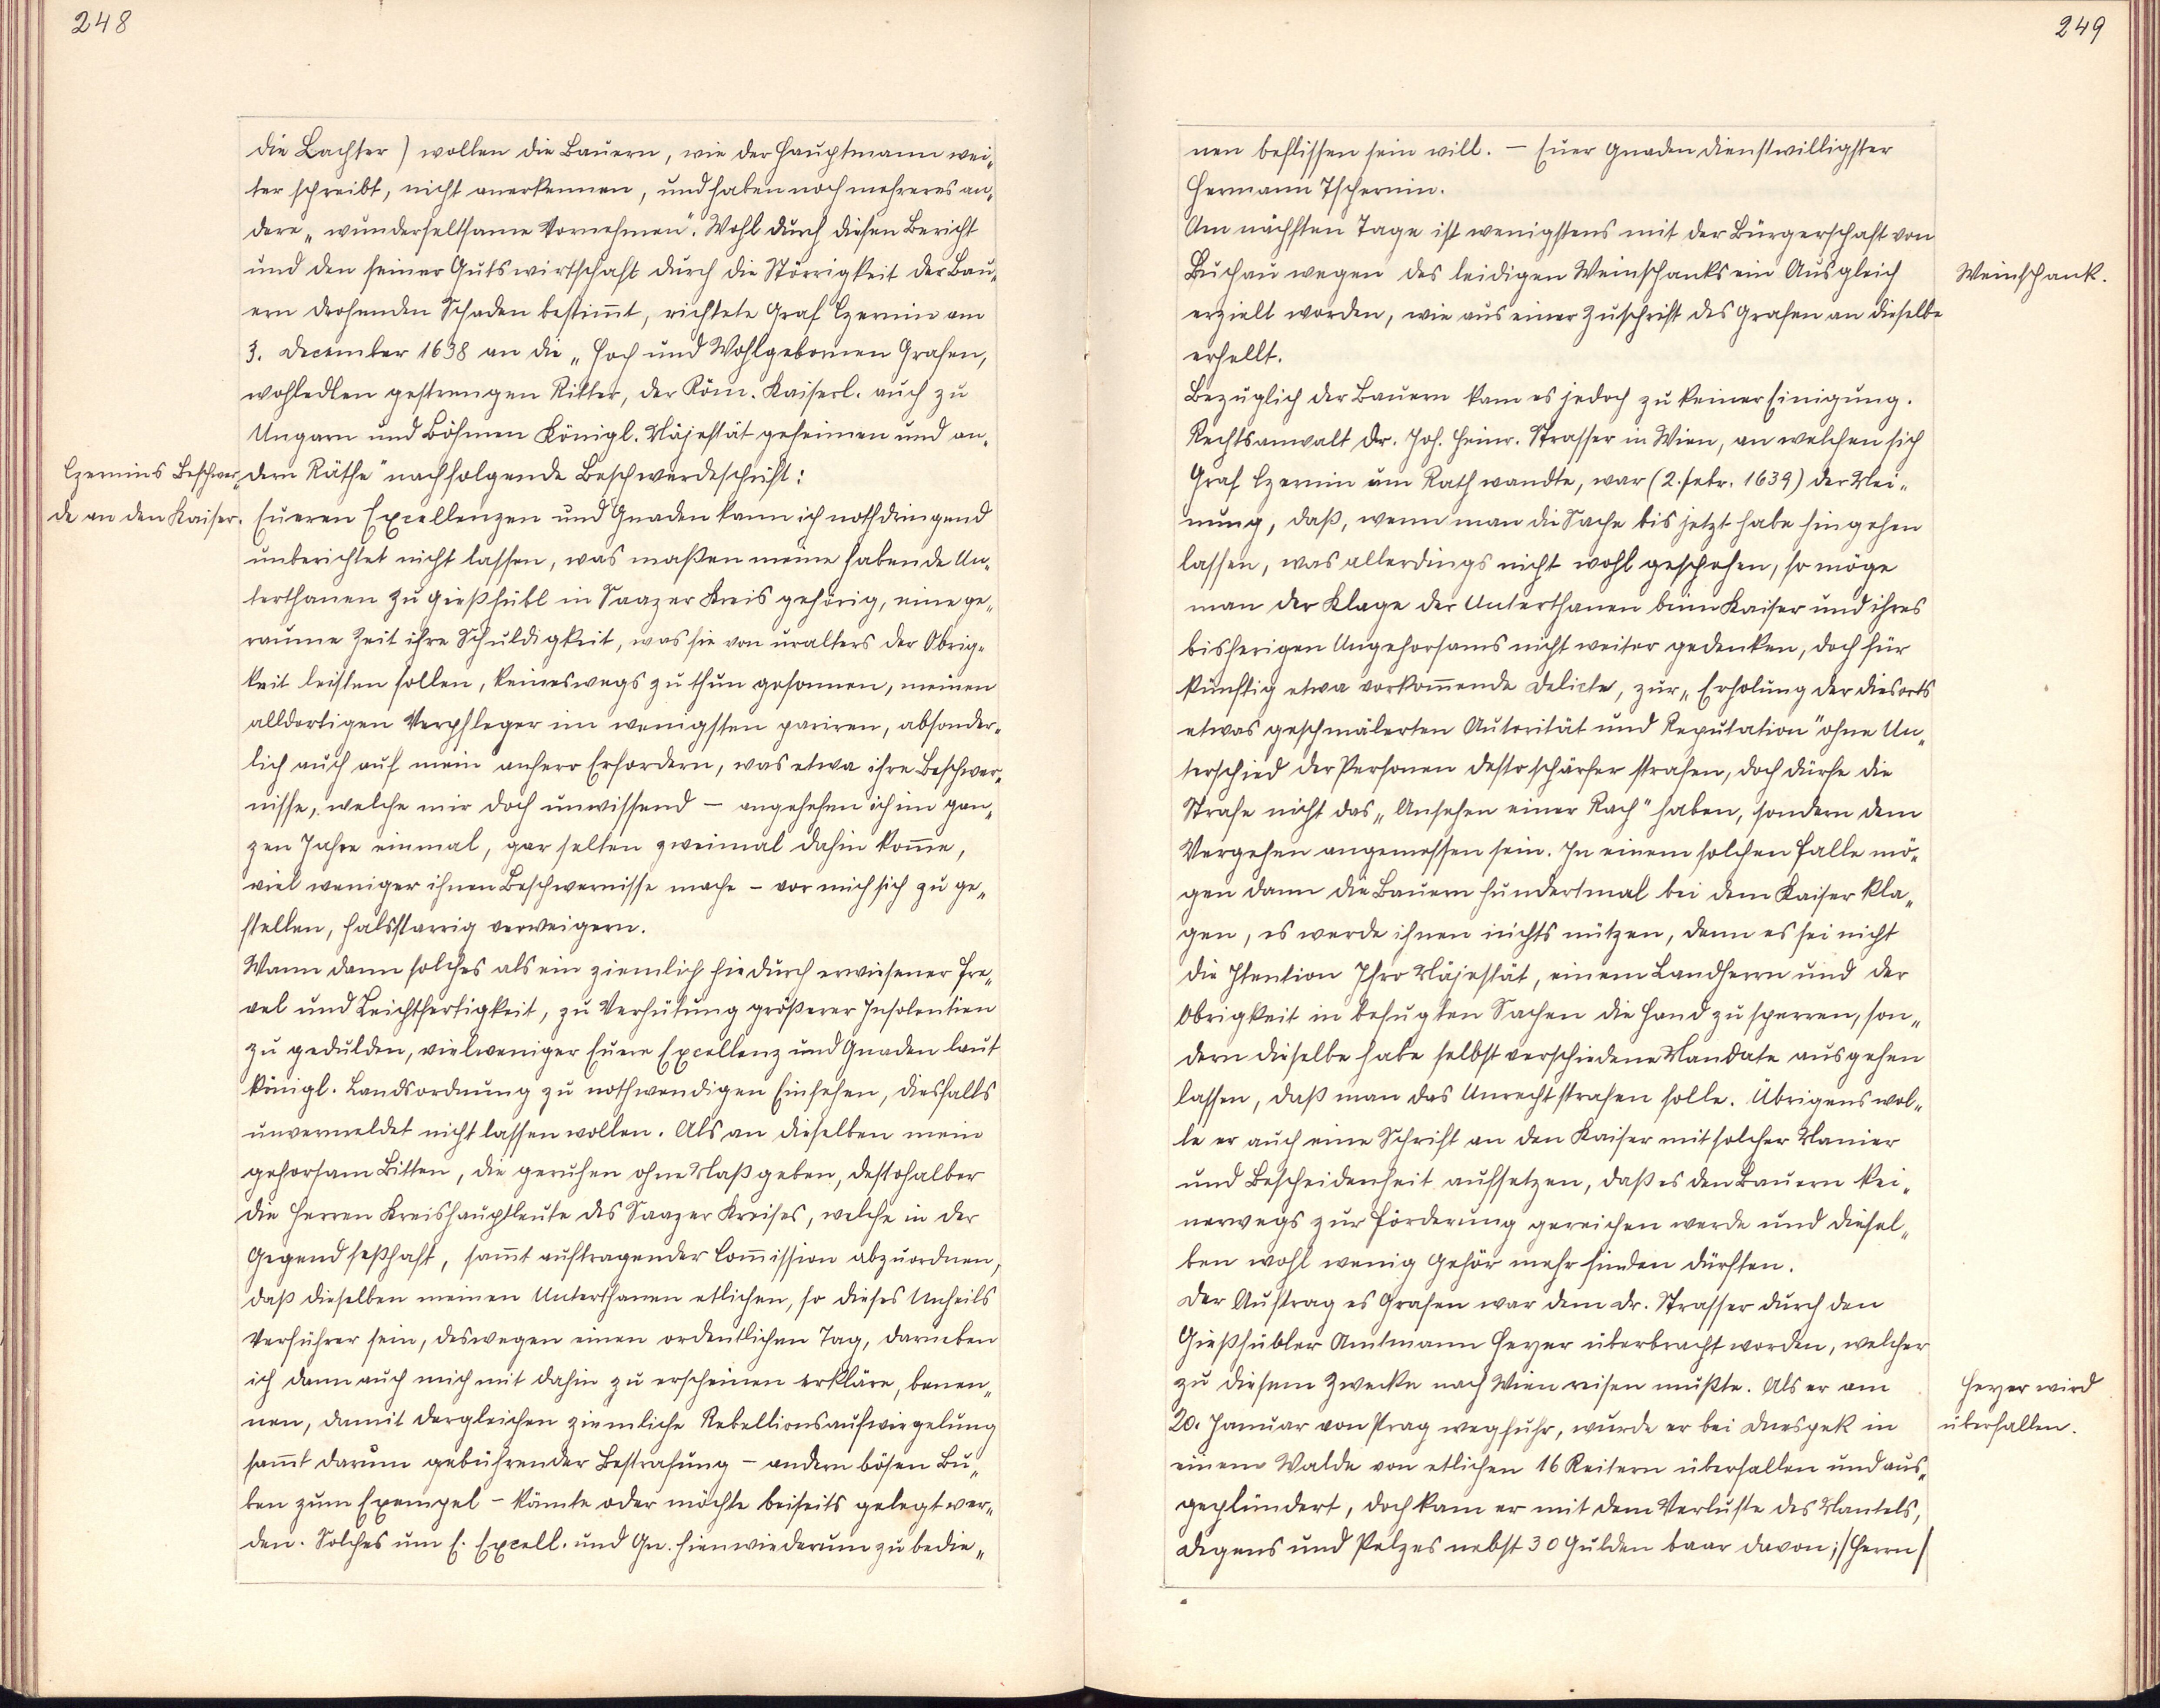 248
die Lachter) wollen die Bauern, wie der Hauptmann wei„
ter schreibt, nicht anerkennen, und haben noch mehreres an„
dere „wunderseltsame Vornehmen“. Wohl durch diesen Bericht
und den seiner Gutswirtschaft durch die Störrigkeit der Bau„
ern drohenden Schaden bestim̄t, richtete Graf Czernin am
3. December 1638 an die „Hoch und Wohlgebornen Grafen,
wohledlen gestrengen Ritter, der Röm. Kaiserl. auch zu
Ungarn und Böhmen Königl. Majestät geheimen und an„
dern Räthe“ nachfolgende Beschwerdeschrift:
Czernins Beschwer„
de an den Kaiser.
Eueren Excellenzen und Gnaden kann ich nothdringend
unberichtet nicht lassen, was maßen meine habende Un„
terthanen zu Gießhübl in Saazer Kreis gehörig, eine ge„
raume Zeit ihre Schuldigkeit, was sie von uralters der Obrig„
keit leisten sollen, keineswegs zu thun gesonnen, meinen
alldortigen Verpfleger im wenigsten pariren, absonder„
lich auch auf mein anhero Erfordern, was etwa ihre Beschwer„
nisse, welche mir doch unwissend – angesehen ich im gan„
zen Jahre einmal, gar selten zweimal dahin kom̄e,
viel weniger ihnen Beschwernisse mache – vor mich sich zu ge„
stellen, halsstarrig verweigern.
Wann dann solches als ein ziemlich hiedurch erwiesener Fre„
vel und Leichtfertigkeit, zu Verhütung größerer Insolentien
zu gedulden, vielweniger Euere Excellenz und Gnaden laut
königl. Landsordnung zu nothwendigen Einsehen, diesfalls
unvermeldet nicht lassen wollen. Als an dieselben mein
gehorsam Bitten, die geruhen ohne Maß geben, destohalber
die Herren Kreishauptleute des Saazer Kreises, welche in der
Gegend seßhaft, sam̄t auftragender Com̄ission abzuordnen,
daß dieselben meinen Unterthanen etlichen, so dieses Unheils
Verführer sein, deswegen einen ordentlichen Tag, darneben
ich dann auch mich mit dahin zu erscheinen erkläre, benen„
nen, damit dergleichen ziemliche Rebellionsaufwiegelung
sam̄t darum gebührender Bestrafung – andern bösen Bu„
ben zum Exempel – könnte oder möchte beiseits gelegt wer„
den. Solches um E. Excell. und Gn. hienwiederum zu bedie„
249
nen beflissen sein will. – Euer Gnaden dienstwilligster
Hermann Tschernin.
Am nächsten Tage ist wenigstens mit der Bürgerschaft von
Buchau wegen des leidigen Weinschanks ein Ausgleich
Weinschank.
erzielt worden, wie aus einer Zuschrift des Grafen an dieselbe
erhellt.
Bezüglich der Bauern kam es jedoch zu keiner Einigung.
Rechtsanwalt Dr. Joh. Heinr. Strasser in Wien, an welchen sich
Graf Czernin um Rath wandte, war (2. Febr. 1639) der Mei„
nung, daß, wenn man die Sache bis jetzt habe hingehen
lassen, was allerdings nicht wohl geschehen, so möge
man der Klage der Unterthanen beim Kaiser und ihres
bisherigen Ungehorsams nicht weiter gedenken, doch für
künftig etwa vorkom̄ende Delicte, zur „Erholung der diesorts
etwas geschmälerten Autorität und Reputation“ ohne Un„
terschied der Personen desto schärfer strafen, doch dürfe die
Strafe nicht das „Ansehen einer Rach“ haben, sondern dem
Vergehen angemessen sein. In einem solchen Falle mö„
gen dann die Bauern hundertmal bei dem Kaiser kla„
gen, es werde ihnen nichts nützen, denn es sei nicht
die Itention Ihro Majestät, einem Landherrn und der
Obrigkeit in befugten Sachen die Hand zu sperren, son„
dern dieselbe habe selbst verschiedene Mandate ausgehen
lassen, daß man das Unrecht strafen solle. Übrigens wol„
le er auch eine Schrift an den Kaiser mit solcher Manier
und Bescheidenheit aufsetzen, daß es den Bauern kei„
nerwegs zur Förderung gereichen werde und diesel„
ben wohl wenig Gehör mehr finden dürften.
Der Auftrag es Grafen war dem Dr. Strasser durch den
Gießhübler Amtmann Heyer überbracht worden, welcher
zu diesem Zwecke nach Wien reisen mußte. Als er am
Heyer wird
20. Januar von Prag wegfuhr, wurde er bei Dnespek in
überfallen.
einem Walde von etlichen 16 Reitern überfallen und aus„
geplündert, doch kam er mit dem Verluste des Mantels,
Degens und Pelzes nebst 30 Gulden baar davon; /Herrn/